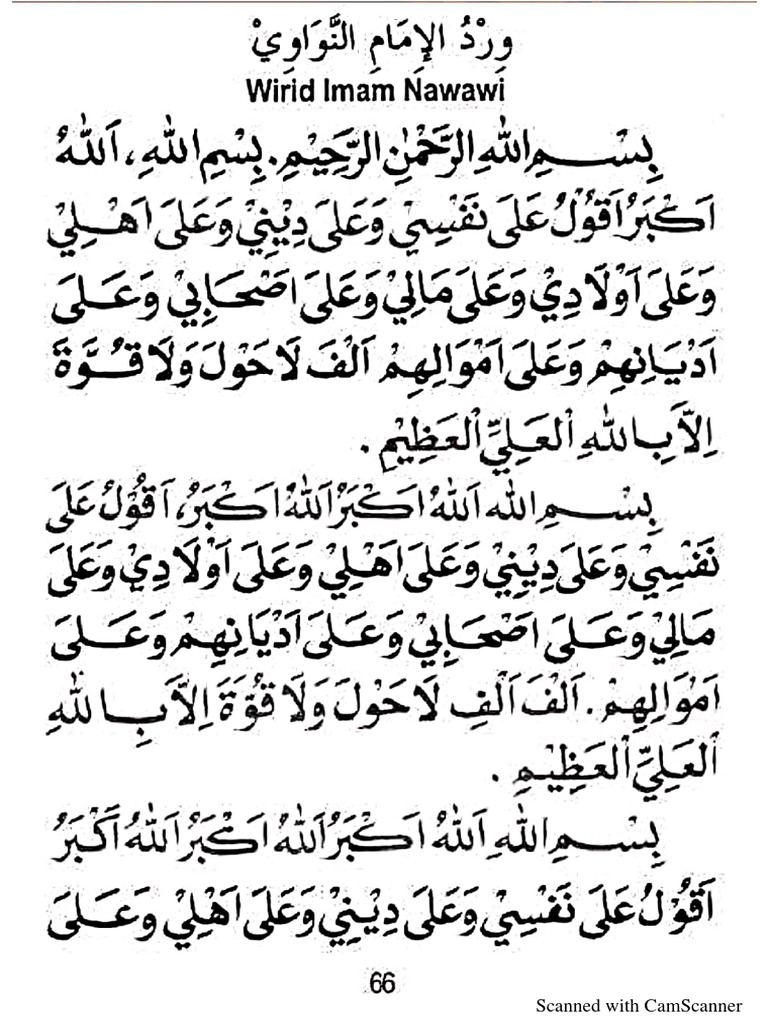 وِرْدُ الإِمَامِ النَّوَاوِيْ
Wirid Imam Nawawi
بِسْــمِ اللهِ الرَّحْمٰنِ الرَّحِيْمِ. بِسْمِ اللهِ، اَللهُ
اَكْبَرُ اَقُوْلُ عَلَى نَفْسِيْ وَعَلَى دِيْنِيْ وَعَلَى اَهْلِيْ
وَعَلَى اَوْلَادِيْ وَعَلَى مَالِيْ وَعَلَى اَصْحَابِيْ وَعَلَى
اَدْيَانِهِمْ وَعَلَى اَمْوَالِهِمْ اَلْفَ لَا حَوْلَ وَلَا قُوَّةَ
اِلاَّ بِاللهِ الْعَلِيِّ الْعَظِيْمِ .
بِسْــمِ اللهِ اَللهُ اَكْبَرُ اَللهُ اَكْبَرُ، اَقُوْلُ عَلَى
نَفْسِيْ وَعَلَى دِيْنِيْ وَعَلَى اَهْلِيْ وَعَلَى اَوْلَادِيْ وَعَلَى
مَالِيْ وَعَلَى اَصْحَابِيْ وَعَلَى اَدْيَانِهِمْ وَعَلَى
اَمْوَالِهِمْ. اَلْفَ اَلْفِ لَا حَوْلَ وَلَا قُوَّةَ اِلاَّ بِاللهِ
الْعَلِيِّ الْعَظِيْمِ .
بِسْــمِ اللهِ اَللهُ اَكْبَرُ اَللهُ اَكْبَرُ اَللهُ اَكْبَرُ
اَقُوْلُ عَلَى نَفْسِيْ وَعَلَى دِيْنِيْ وَعَلَى اَهْلِيْ وَعَلَى
66
Scanned with CamScanner